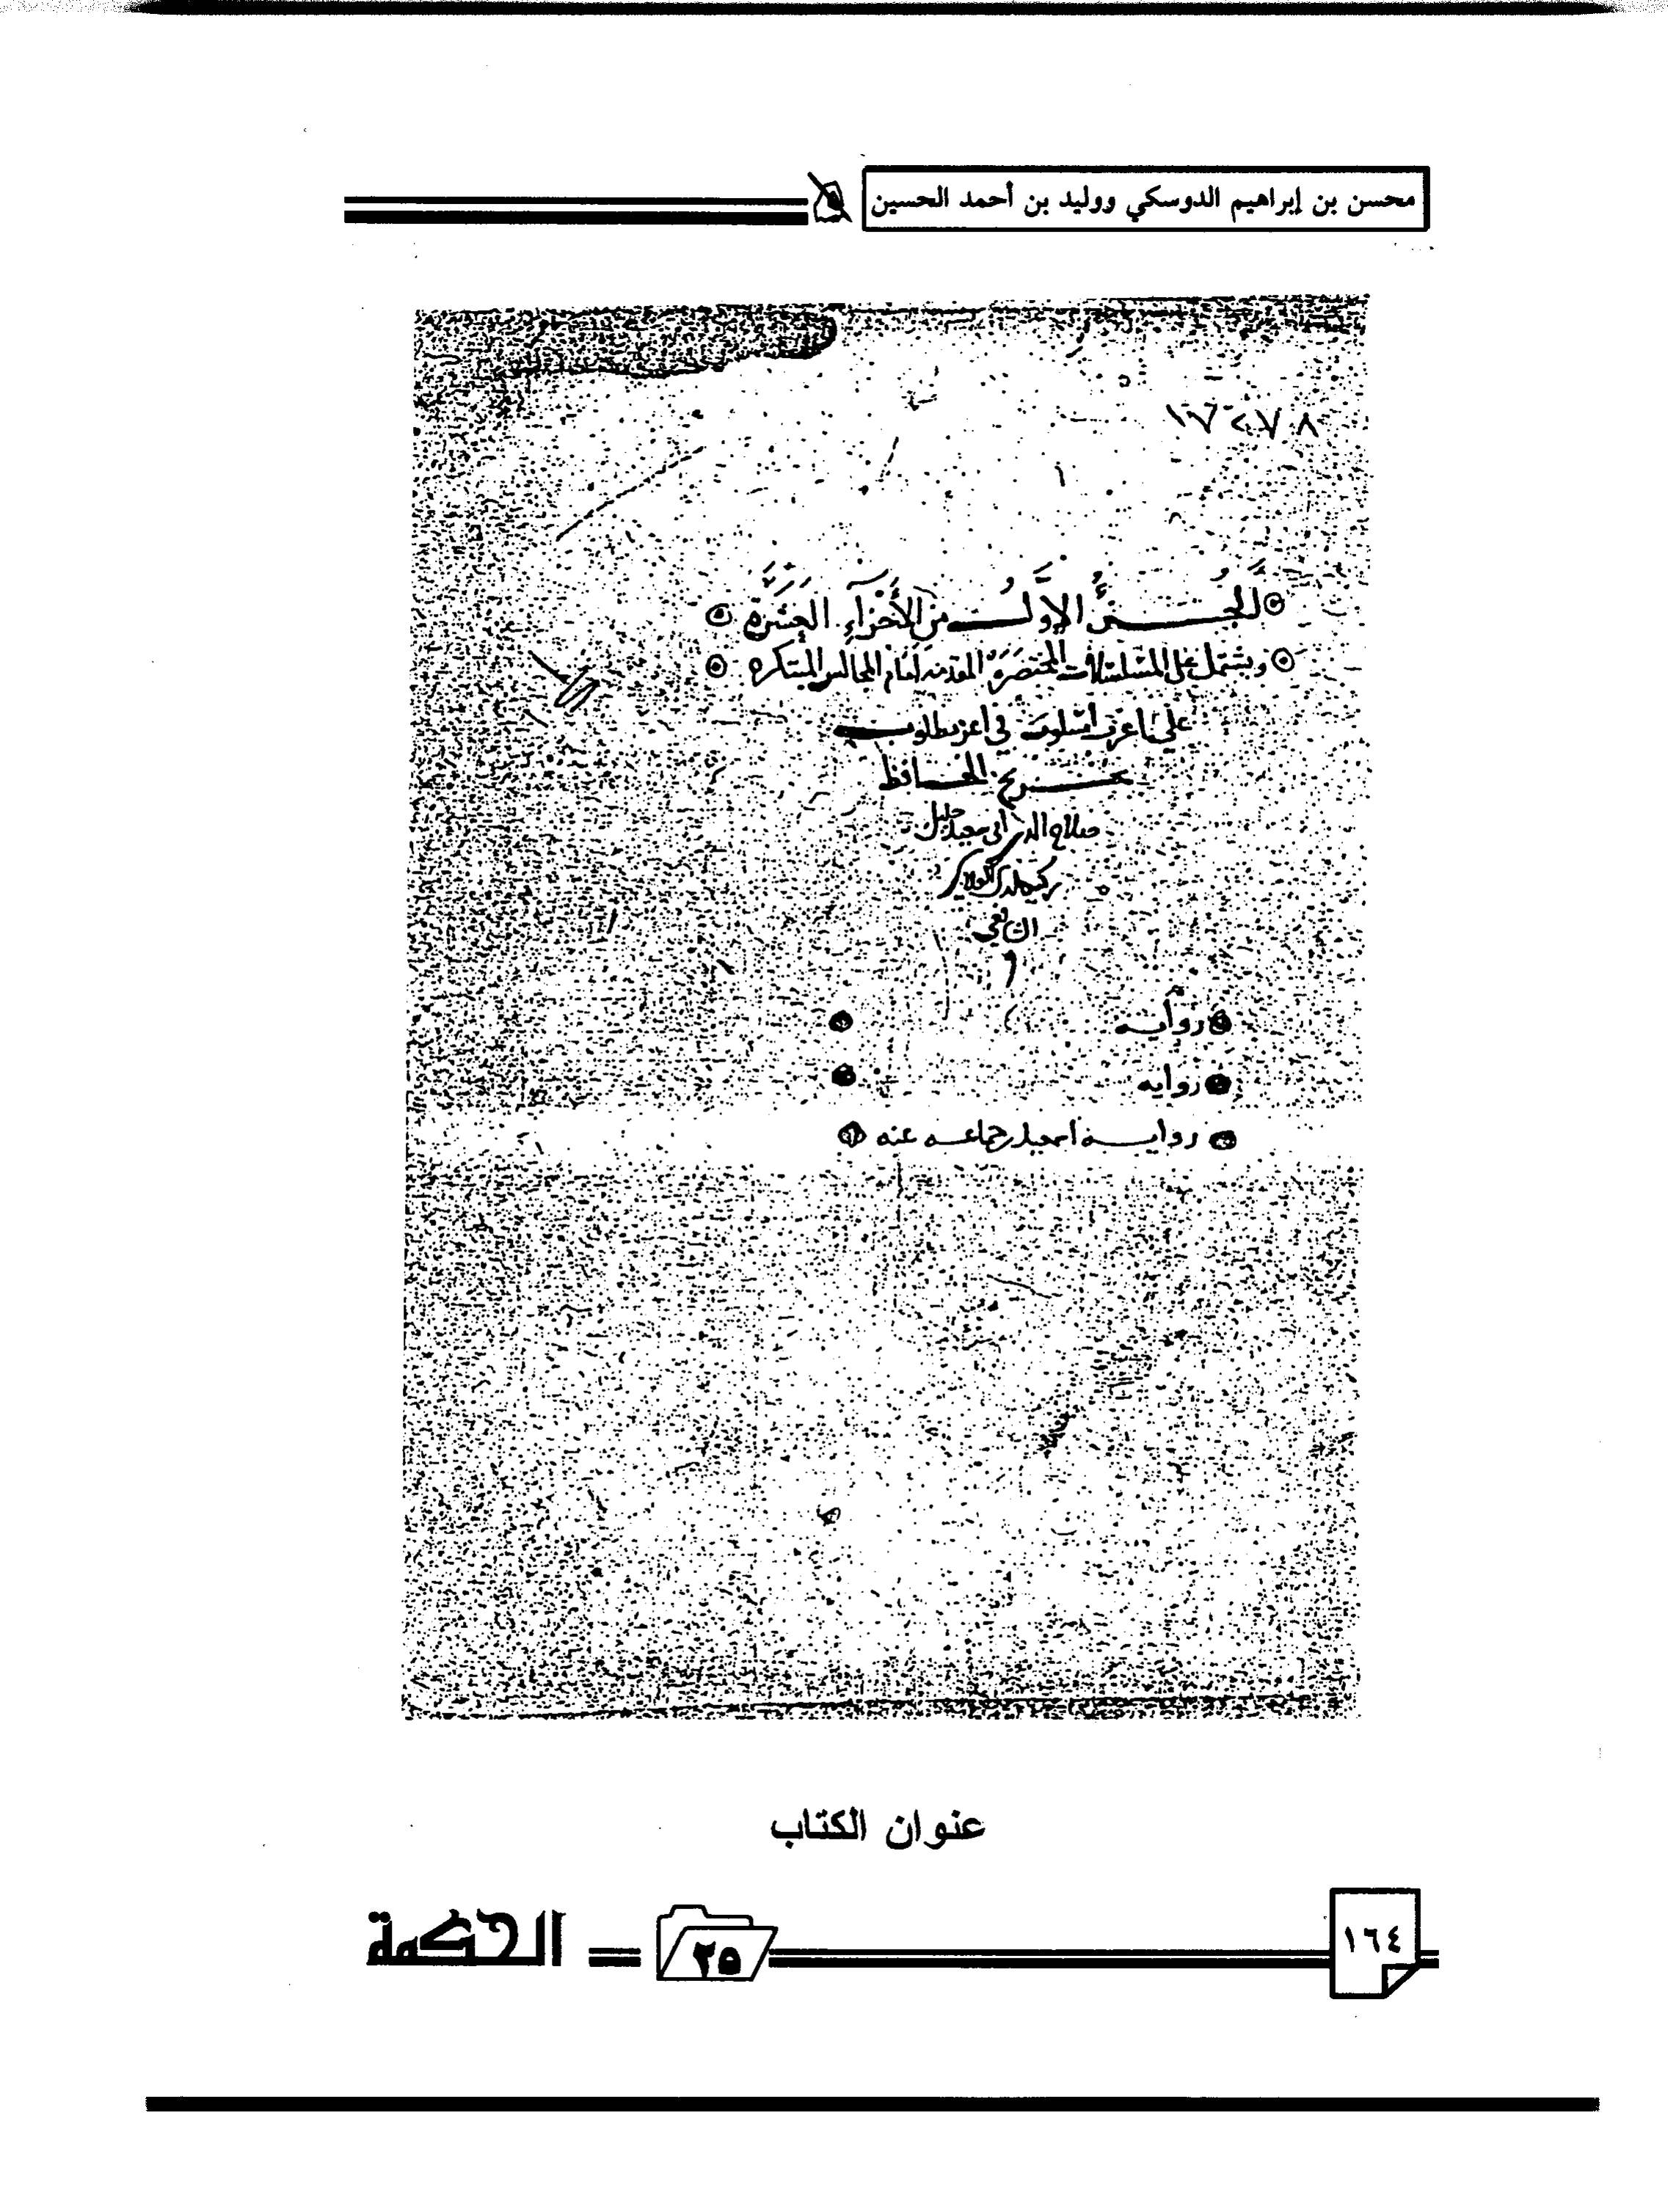 محسن بن إبراهيم الدوسكي ووليد بن أحمد الحسين
الجزءُ الأوَّلُ من الأجزاءِ العشَرَة
ويشتمل على المسلسلات المختصَرَة المقدمة أمام المجالس المبتكره
على أسلوب في أعز مطلوب
تخريج الحافظ
صلاح الدين أبي سعيد خليل
كيكلدي العلائي
الشافعي
روايـة
رواية
روايـة جماعـة عنه
عنوان الكتاب
١٦٤
٢٥
الحكمة